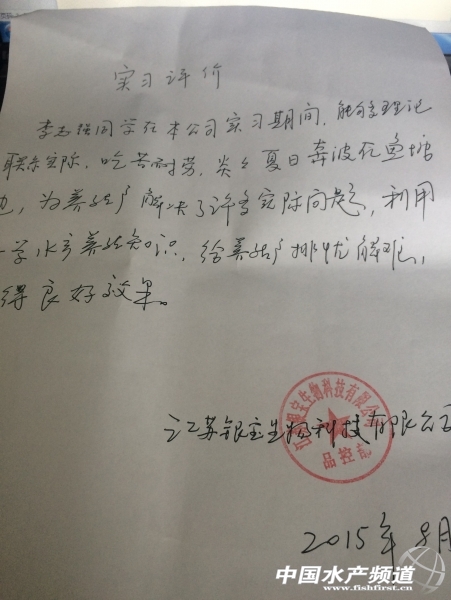 实习评价
李志强同学在本公司实习期间，能够学理论
联系实际，吃苦耐劳，炎炎夏日奔波在鱼塘
边，为养殖户解决了许多实际问题，利用
学水产养殖知识，给养殖户排忧解难，
得良好效果。
江苏银宝生物科技有限公司
品控部
2015年8月
中国水产频道
www.fishfirst.cn